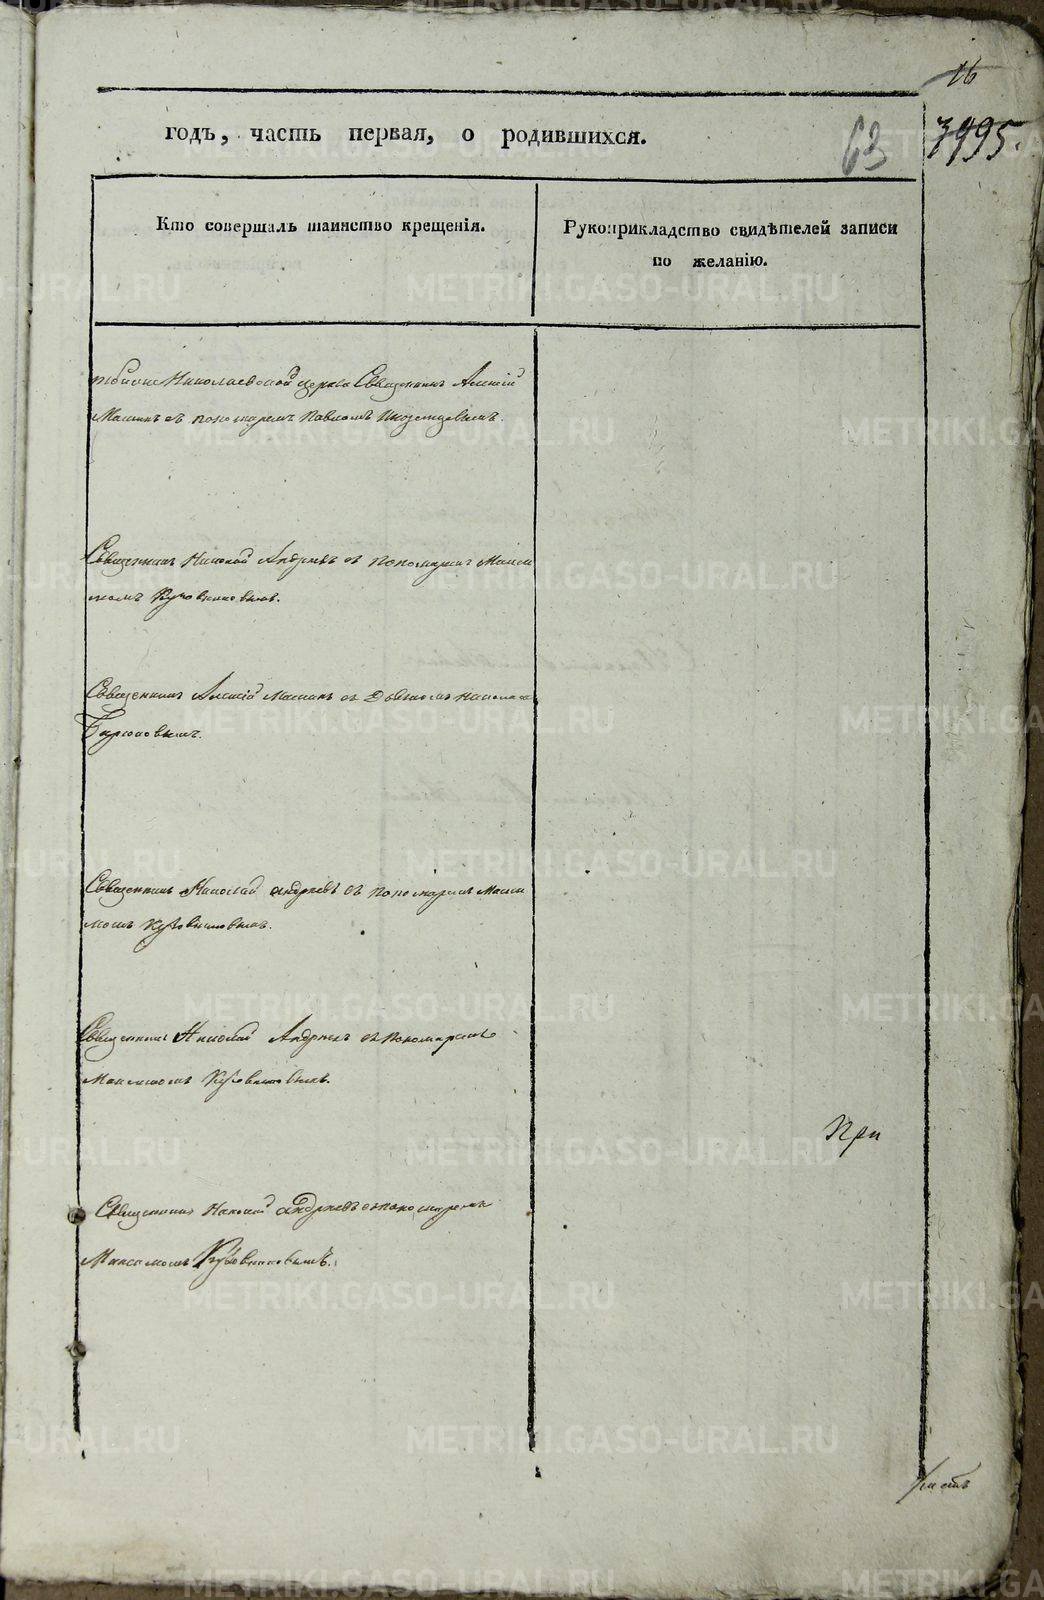 16
годъ, часть первая, о родившихся.
63
7995.
Кто совершалъ таинство крещенія.
Рукоприкладство свидѣтелей записи
по желанію.
Николаевской церкви Священникъ Алексій
Машинъ съ пономаремъ Павломъ Иноземцевымъ.
Священникъ Николай Андреевъ съ пономаремъ Макси
момъ
Священникъ Алексій Машинъ съ Дьячкомъ
Бирюковымъ.
Священникъ Николай Андреевъ съ пономаремъ Макси
момъ
Священникъ Николай Андреевъ съ пономаремъ
Максимомъ
При
Священникъ Николай Андреевъ съ пономаремъ
Максимомъ
METRIKI.GASO-URAL.RU